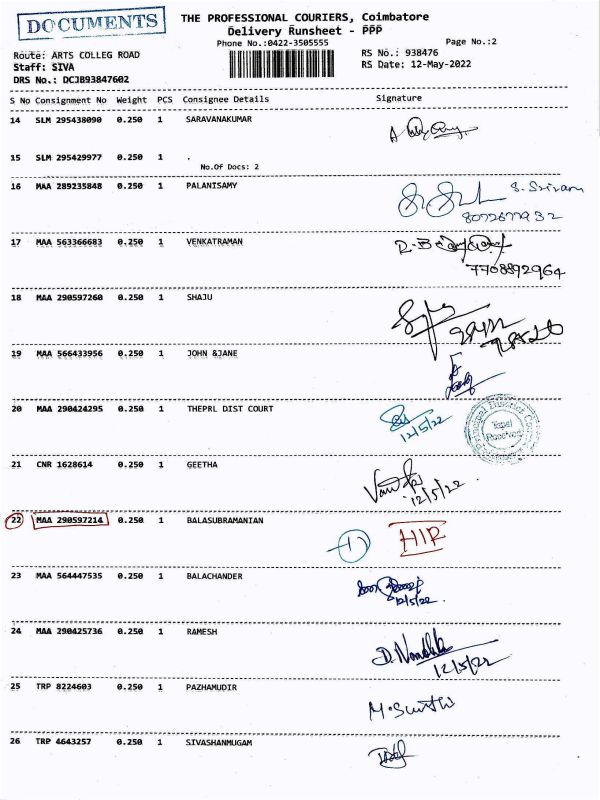 DOCUMENTS
THE PROFESSIONAL COURIERS, Coimbatore
Delivery Runsheet - PPP
Phone No.:0422-3505555
Page No.:2
Route: ARTS COLLEG ROAD
RS No.: 938476
Staff: SIVA
RS Date: 12-May-2022
DRS No.: DCJB93847602
S No Consignment No Weight PCS Consignee Details Signature
14 SLM 295438090 0.250 1 SARAVANAKUMAR
15 SLM 295429977 0.250 1 .
No.Of Docs: 2
16 MAA 289235848 0.250 1 PALANISAMY
S. Sriram
8072677932
17 MAA 563366683 0.250 1 VENKATRAMAN
7708892964
18 MAA 290597260 0.250 1 SHAJU
19 MAA 566433956 0.250 1 JOHN &JANE
20 MAA 290424295 0.250 1 THEPRL DIST COURT
12/5/22
Tapal Received
21 CNR 1628614 0.250 1 GEETHA
12/5/22.
22 MAA 290597214 0.250 1 BALASUBRAMANIAN
1 HIR
23 MAA 564447535 0.250 1 BALACHANDER
12/5/22.
24 MAA 290425736 0.250 1 RAMESH
12/5/22
25 TRP 8224603 0.250 1 PAZHAMUDIR
26 TRP 4643257 0.250 1 SIVASHANMUGAM